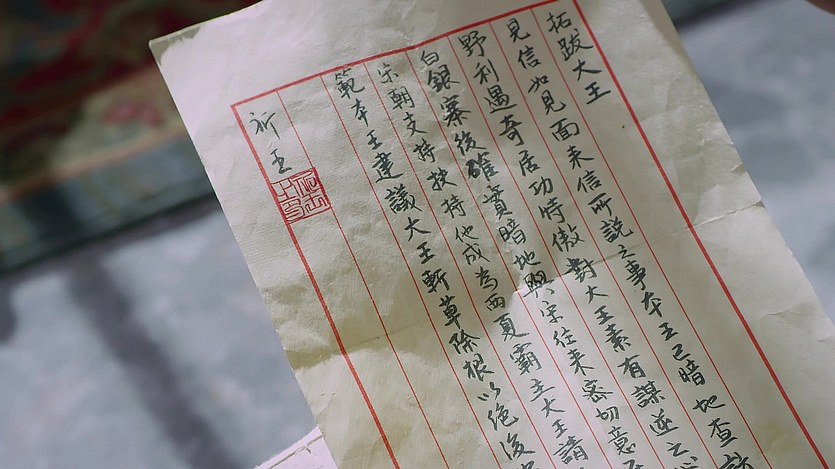 拓跋大王
見信如見面来信所説之事本王已暗地查訪
野利遇奇居功時傲對大王素有謀逆之
白銀寨後確實暗地與宋往来密切意
宋朝支持扶持他成為西夏霸主大王請
範本王建議大王斬草除根以绝後
祈王